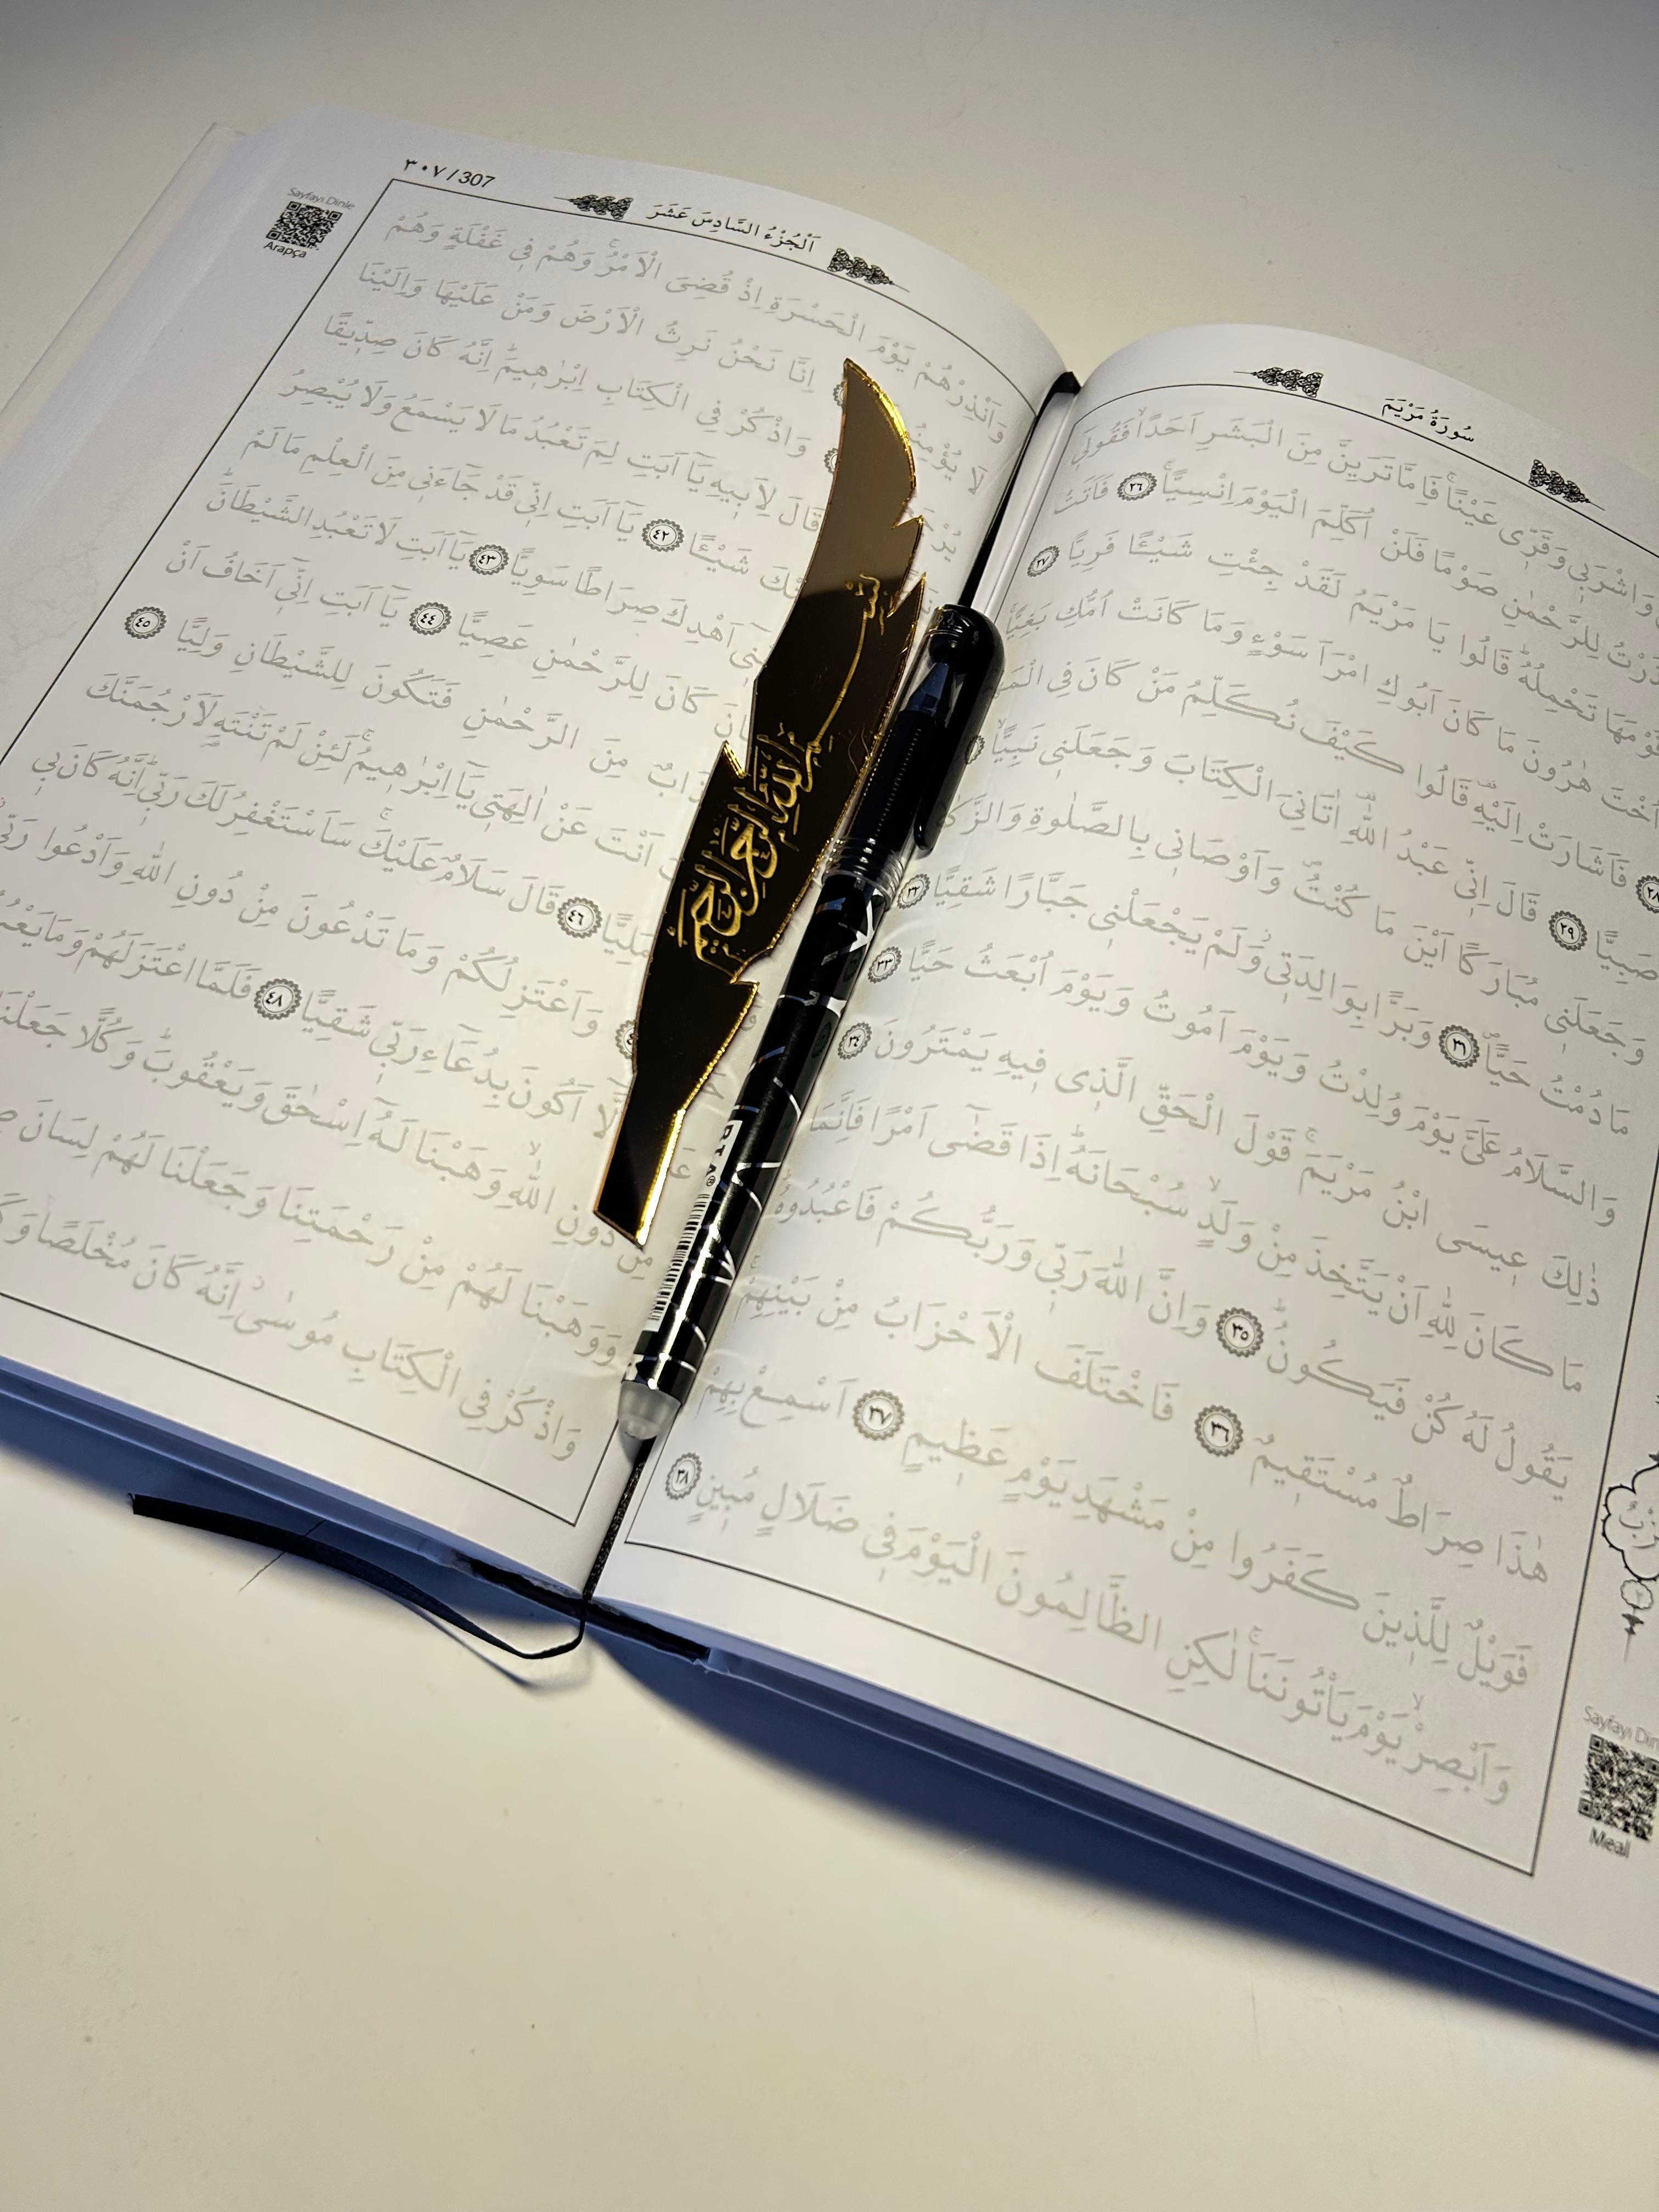 سُورَةُ مَرْيَمَ
وَاشْرَبِي وَقَرِّي عَيْنًاۚ فَاِمَّا تَرَيِنَّ مِنَ الْبَشَرِ اَحَدًاۙ فَقُولِٓي
لِلرَّحْمٰنِ صَوْمًا فَلَنْ اُكَلِّمَ الْيَوْمَ اِنْسِيًّاۚ ٢٦ فَاَتَتْ
تَحْمِلُهُۜ قَالُوا يَا مَرْيَمُ لَقَدْ جِئْتِ شَيْـًٔا فَرِيًّا ٢٧
اُخْتَ هٰرُونَ مَا كَانَ اَبُوكِ امْرَاَ سَوْءٍ وَمَا كَانَتْ اُمُّكِ بَغِيًّاۚ
٢٨ فَاَشَارَتْ اِلَيْهِۜ قَالُوا كَيْفَ نُكَلِّمُ مَنْ كَانَ فِي
صَبِيًّا ٢٩ قَالَ اِنِّي عَبْدُ اللّٰهِۜ اٰتَانِيَ الْكِتَابَ وَجَعَلَنِي نَبِيًّاۙ
وَجَعَلَنِي مُبَارَكًا اَيْنَ مَا كُنْتُۖ وَاَوْصَانِي بِالصَّلٰوةِ
مَا دُمْتُ حَيًّاۖ ٣١ وَبَرًّا بِوَالِدَتِيۘ وَلَمْ يَجْعَلْنِي جَبَّارًا شَقِيًّا ٣٢
وَالسَّلَامُ عَلَيَّ يَوْمَ وُلِدْتُ وَيَوْمَ اَمُوتُ وَيَوْمَ اُبْعَثُ حَيًّا ٣٣
ذٰلِكَ عِيسَى ابْنُ مَرْيَمَۚ قَوْلَ الْحَقِّ الَّذِي فِيهِ يَمْتَرُونَ ٣٤
مَا كَانَ لِلّٰهِ اَنْ يَتَّخِذَ مِنْ وَلَدٍۙ سُبْحَانَهُۜ اِذَا قَضٰٓى اَمْرًا فَاِنَّمَا
يَقُولُ لَهُ كُنْ فَيَكُونُۜ ٣٥ وَاِنَّ اللّٰهَ رَبِّي وَرَبُّكُمْ فَاعْبُدُوهُۜ
هٰذَا صِرَاطٌ مُسْتَقِيمٌ ٣٦ فَاخْتَلَفَ الْاَحْزَابُ مِنْ بَيْنِهِمْۚ
فَوَيْلٌ لِلَّذِينَ كَفَرُوا مِنْ مَشْهَدِ يَوْمٍ عَظِيمٍ ٣٧ اَسْمِعْ بِهِمْ
وَاَبْصِرْۙ يَوْمَ يَأْتُونَنَا لٰكِنِ الظَّالِمُونَ الْيَوْمَ فِي ضَلَالٍ مُبِينٍ ٣٨
Meal
٣٠٧ / 307
اَلْجُزْءُ السَّادِسَ عَشَرَ
Sayfayı Dinle
Arapça
وَاَنْذِرْهُمْ يَوْمَ الْحَسْرَةِ اِذْ قُضِيَ الْاَمْرُۢ وَهُمْ فِي غَفْلَةٍ وَهُمْ
لَا اِنَّا نَحْنُ نَرِثُ الْاَرْضَ وَمَنْ عَلَيْهَا وَاِلَيْنَا
وَاذْكُرْ فِي الْكِتَابِ اِبْرٰهِيمَۜ اِنَّهُ كَانَ صِدِّيقًا
قَالَ لِاَبِيهِ يَٓا اَبَتِ لِمَ تَعْبُدُ مَا لَا يَسْمَعُ وَلَا يُبْصِرُ
شَيْـًٔا ٤٢ يَٓا اَبَتِ اِنِّي قَدْ جَٓاءَنِي مِنَ الْعِلْمِ مَا لَمْ
اَهْدِكَ صِرَاطًا سَوِيًّا ٤٣ يَٓا اَبَتِ لَا تَعْبُدِ الشَّيْطَانَۜ
كَانَ لِلرَّحْمٰنِ عَصِيًّا ٤٤ يَٓا اَبَتِ اِنِّٓي اَخَافُ اَنْ
مِنَ الرَّحْمٰنِ فَتَكُونَ لِلشَّيْطَانِ وَلِيًّا ٤٥
اَنْتَ عَنْ اٰلِهَتِي يَٓا اِبْرٰهِيمُۚ لَئِنْ لَمْ تَنْتَهِ لَاَرْجُمَنَّكَ
مَلِيًّا ٤٦ قَالَ سَلَامٌ عَلَيْكَۚ سَاَسْتَغْفِرُ لَكَ رَبِّيۜ اِنَّهُ كَانَ بِي
وَاَعْتَزِلُكُمْ وَمَا تَدْعُونَ مِنْ دُونِ اللّٰهِ وَاَدْعُوا
اَلَّٓا اَكُونَ بِدُعَٓاءِ رَبِّي شَقِيًّا ٤٨ فَلَمَّا اعْتَزَلَهُمْ وَمَا
مِنْ دُونِ اللّٰهِۙ وَهَبْنَا لَهُٓ اِسْحٰقَ وَيَعْقُوبَۜ وَكُلًّا جَعَلْنَا
وَوَهَبْنَا لَهُمْ مِنْ رَحْمَتِنَا وَجَعَلْنَا لَهُمْ لِسَانَ
وَاذْكُرْ فِي الْكِتَابِ مُوسٰىۘ اِنَّهُ كَانَ مُخْلَصًا
بسم الله الرحمن الرحيم